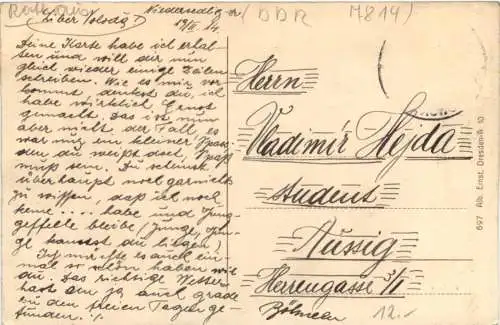 DDR
M814
Niedersedlitz
19/II 14.
Lieber Voloda!
Deine Karte habe ich erhal-
ten und will dir nun
gleich wieder einige Zeilen
schreiben. Wie es mir vor
kommt denkst du, ich
habe wirklich Ernst
gemacht. Das ist nun
aber nicht der Fall, es
war nur ein kleiner Spass,
denn du weißt doch, Spaß
muß sein. Du scheinst
überhaupt noch garnicht
zu wissen, daß ich noch
keine ... habe und Jung-
geselle bleibe (Junge, Jun-
ge kannst du lügen)
es auch ein-
mal so schön haben wie
du. Das richtige Wetter
hast du ja auch grade
zu den freien Tagen ge-
funden.
Herrn
Vladimir Hejda
Student
Aussig
Herrengasse 3/I
Böhmen
12.-
697 Alb. Ernst, Dresden-A. 10